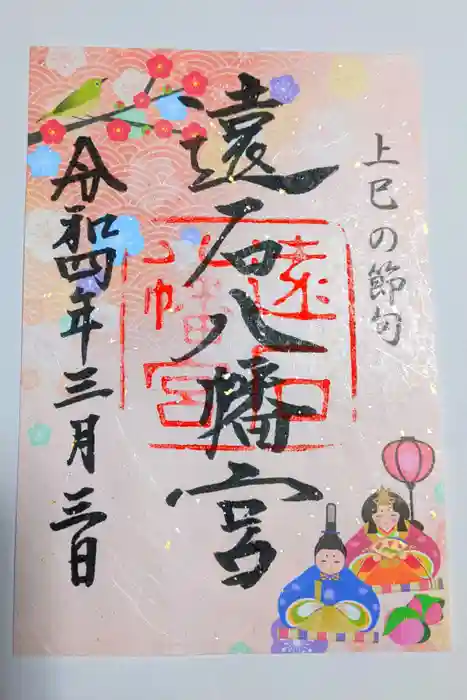 上巳の節句
遠石八幡宮
令和四年三月三日
遠石八幡宮